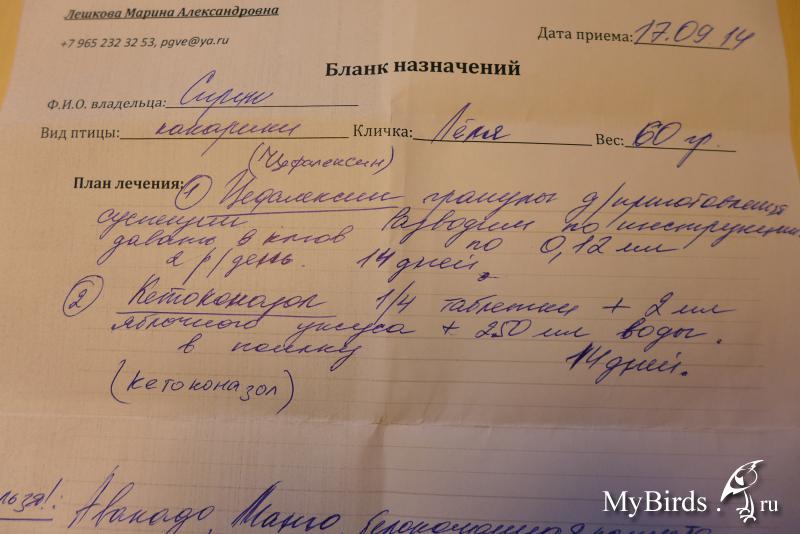 Лешкова Марина Александровна
+7 965 232 32 53, pgve@ya.ru
Дата приема: 17.09 14
Бланк назначений
Ф.И.О. владельца:
Вид птицы: какарики Кличка: Лёля Вес: 60 гр.
(Цефалексин)
План лечения: 1 Цефалексин гранулы д/приготовления
суспензии Разводим по инструкции
давать в клюв по 0,12 мл
2 р/день. 14 дней.
2 Кетоконазол 1/4 таблетки + 2 мл
яблочного уксуса + 250 мл воды.
в поилку 14 дней.
(Кетоконазол)
льзя!: Авакадо, Манго, белокочанная капуста
MyBirds.ru